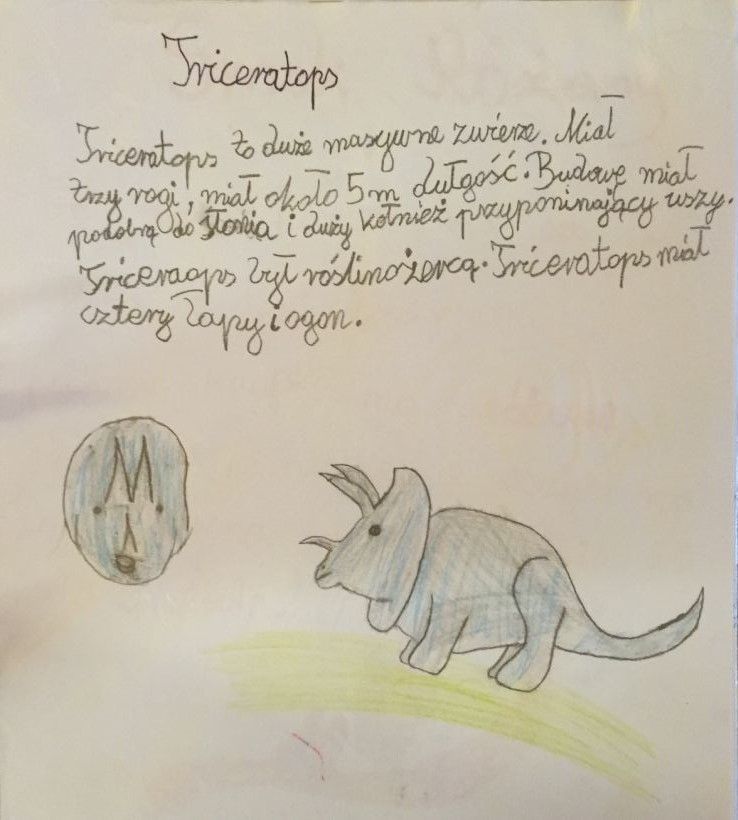 Triceratops
Triceratops to duże masywne zwierze. Miał
trzy rogi, miał około 5m dułgość. Budowę miał
podobną do słonia i duży kołnież przyponinający uszy.
Triceraops był roślinożercą. Triceratops miał
cztery łapy i ogon.